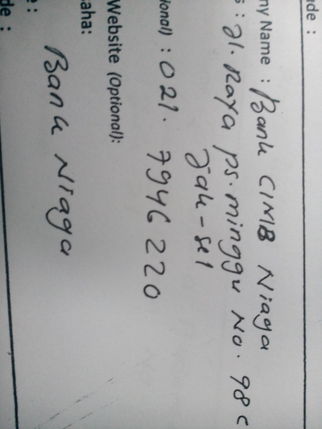 ade :
ny Name : Bank CIMB Niaga
s : Jl. Raya ps. minggu No. 98 c
Jak-sel
ional) : 021. 7946220
Website (Optional):
aha:
e : Bank Niaga
de :